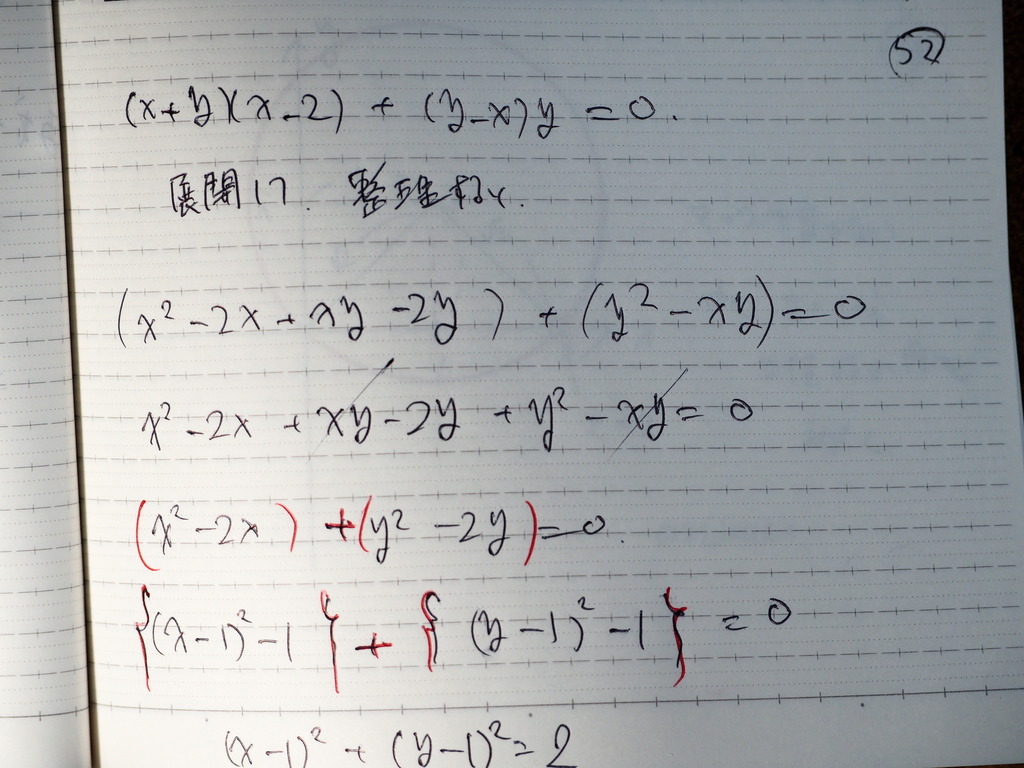 52
(x+y)(x-2) + (y-x)y = 0.
展開して. 整理すると.
(x² - 2x + xy - 2y) + (y² - xy) = 0
x² - 2x + xy - 2y + y² - xy = 0
(x² - 2x) + (y² - 2y) = 0.
{(x-1)² - 1} + {(y-1)² - 1} = 0
(x-1)² + (y-1)² = 2